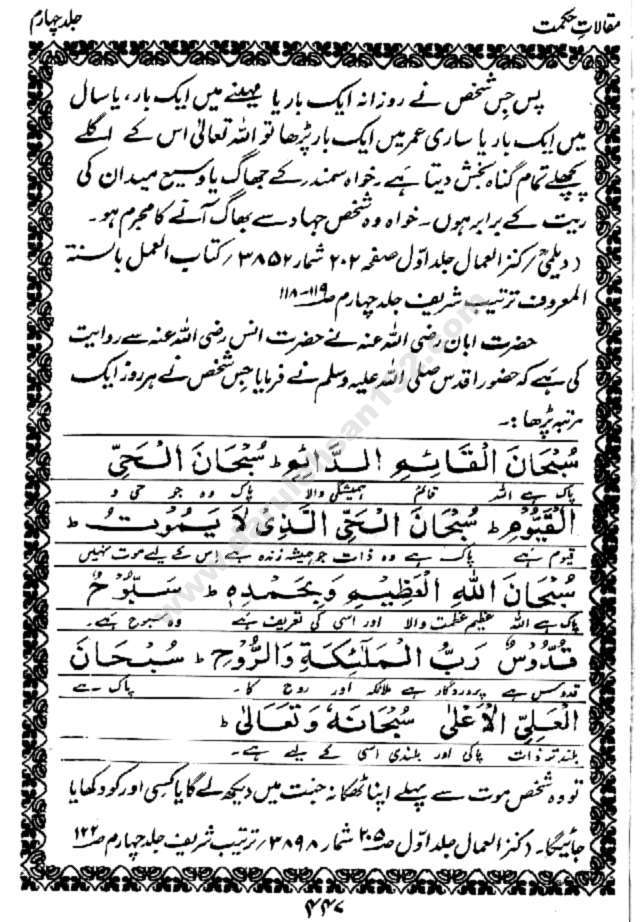 مقالاتِ حکمت
جلد چہارم
پس جس شخص نے روزانہ ایک بار یا مہینے میں ایک بار، یا سال
میں ایک بار یا ساری عمر میں ایک بار پڑھا تو اللہ تعالیٰ اس کے اگلے
پچھلے تمام گناہ بخش دیتا ہے۔ خواہ سمندر کے جھاگ یا وسیع میدان کی
ریت کے برابر ہوں۔ خواہ وہ شخص جہاد سے بھاگ آنے کا مجرم ہو۔
(دیلمیؒ / کنز العمال جلد اوّل صفحہ ۲۰۲ شمار ۳۸۵۲ / کتاب العمل بالسنۃ
المعروف ترتیب شریف جلد چہارم صـ ۱۱۹-۱۱۸
حضرت ابان رضی اللہ عنہ نے حضرت انس رضی اللہ عنہ سے روایت
کی ہے کہ حضور اقدس صلی اللہ علیہ وسلم نے فرمایا جس شخص نے ہر روز ایک
مرتبہ پڑھا :۔
سُبْحَانَ الْقَائِمِ الدَّائِمِ ط سُبْحَانَ الْحَيِّ
پاک ہے اللہ قائم ہمیشگی والا پاک وہ جو حی و
الْقَيُّوْمِ ط سُبْحَانَ الْحَيِّ الَّذِیْ لَا يَمُوْتُ ط
قیوم ہے پاک ہے وہ ذات جو ہمیشہ زندہ ہے اس کے لیے موت نہیں
سُبْحَانَ اللهِ الْعَظِيْمِ وَبِحَمْدِهٖ ط سَبُّوْحٌ
پاک ہے اللہ عظیم عظمت والا اور اسی کی تعریف ہے وہ سبوح ہے۔
قُدُّوْسٌ رَبُّ الْمَلٰٓئِكَةِ وَالرُّوْحِ ط سُبْحَانَ
قدوس ہے پروردگار ہے ملائکہ اور روح کا۔ پاک ہے
الْعَلِيِّ الْاَعْلٰى سُبْحَانَهٗ وَتَعَالٰى ط
بلند تر ذات پاکی اور بلندی اسی کے لیے ہے۔
تو وہ شخص موت سے پہلے اپنا ٹھکانہ جنت میں دیکھ لے گا یا کسی اور کو دکھایا
جائیگا۔ (کنز العمال جلد اوّل صـ ۲۰۵ شمار ۳۸۹۸ / ترتیب شریف جلد چہارم صـ ۱۲۲
۴۴۷